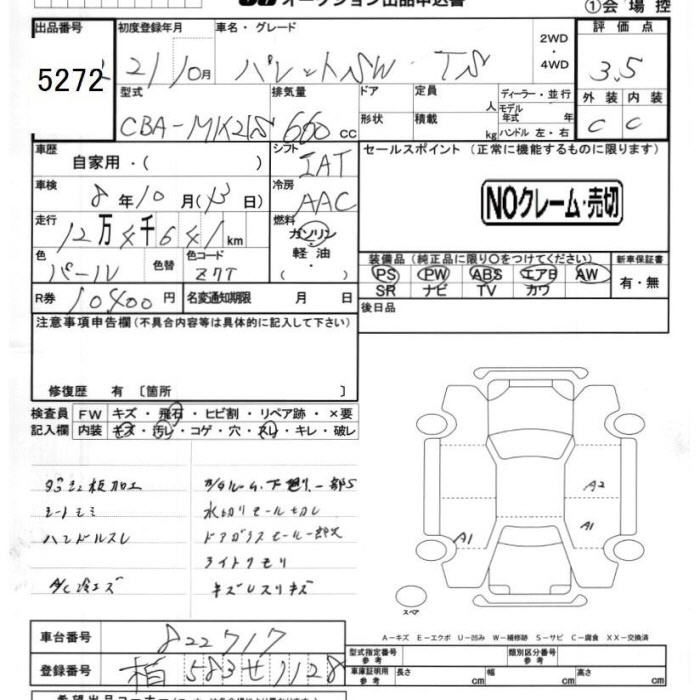 オークション出品申込書
①会場控
出品番号 5272
初度登録年月 21/10月
車名・グレード パレットSW・TS
2WD・4WD
評価点 3.5
型式 CBA-MK21S
排気量 660cc
ドア 形状
定員 人
積載 kg
ディーラー・並行
モデル年式 年
ハンドル 左・右
外装 C 内装 C
車歴 自家用・( )
シフト IAT
セールスポイント(正常に機能するものに限ります)
車検 8年10月(13日)
冷房 AAC
NOクレーム・売切
走行 12万4千641km
燃料 ガソリン・軽油・( )
色 パール 色替
色コード Z7T
装備品(純正品に限り○をつけてください)
PS PW ABS エアB AW
SR ナビ TV カワ
新車保証書 有・無
R券 10400円
名変通知期限 月 日
後日品
注意事項申告欄(不具合内容等は具体的に記入して下さい)
修復歴 有 〔箇所 〕
検査員記入欄
FW キズ・飛石・ヒビ割・リペア跡・×要
内装 キズ・汚レ・コゲ・穴・スレ・キレ・破レ
ダッシュ板加工
シートシミ
ハンドルスレ
A/C冷エズ
水切りモール切レ
ドアガラスモール一部欠
ライトクモリ
キズUスリキズ
A2
A1
A1
スペア
A-キズ E-エクボ U-凹み W-補修跡 S-サビ C-腐食 XX-交換済
車台番号 822717
登録番号 柏583せ1128
型式指定番号 参考
類別区分番号 参考
車庫証明用 参考 長さ cm 幅 cm 高さ cm